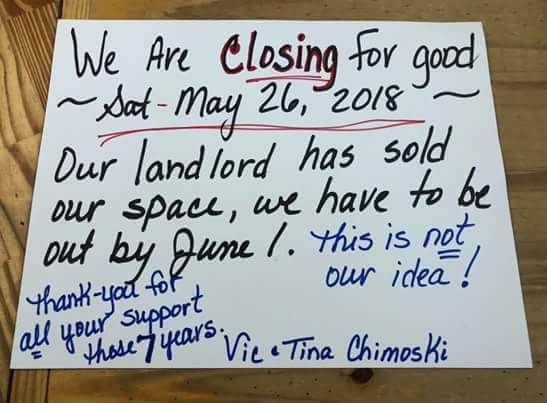 We Are Closing for good
~ Sat - May 26, 2018 ~
Our landlord has sold
our space, we have to be
out by June 1. This is not
our idea!
Thank-you for
all your support
these 7 years.
Vic & Tina Chimoski